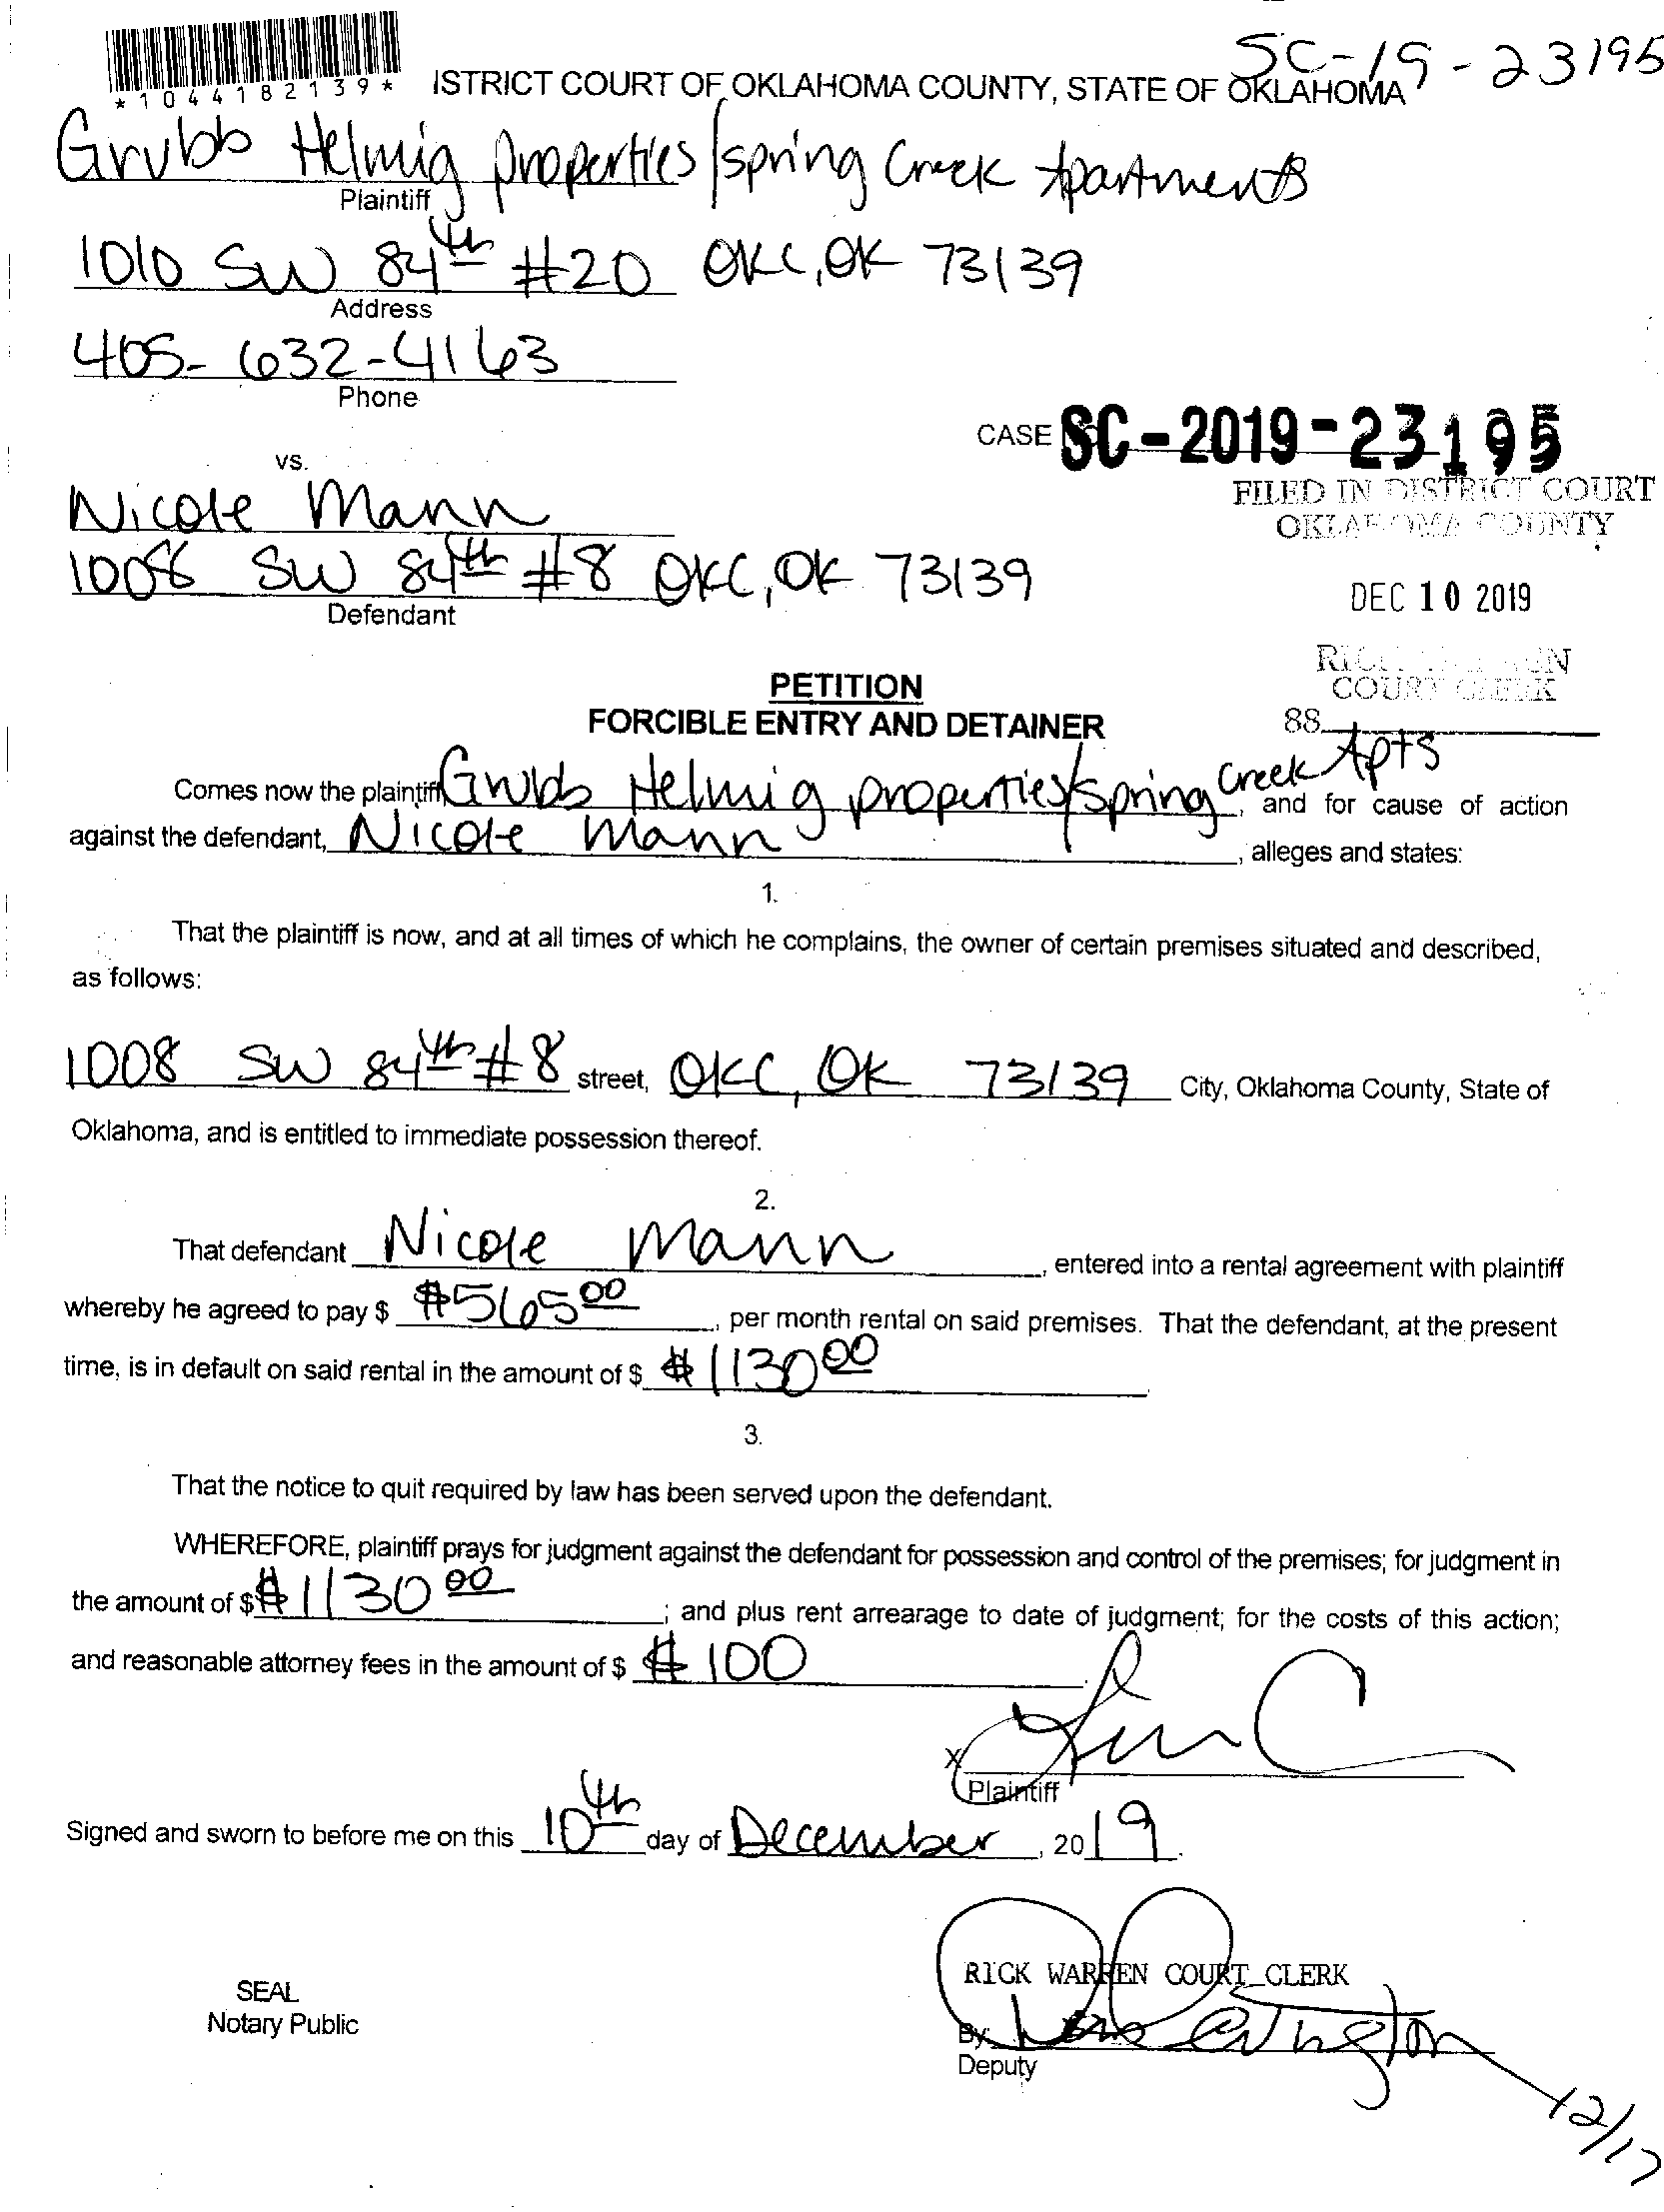 SC-19-23195
*1044182139*
ISTRICT COURT OF OKLAHOMA COUNTY, STATE OF OKLAHOMA
Grubb Helmig properties/spring Creek Apartments
Plaintiff
1010 SW 84th #20 OKC, OK 73139
Address
405-632-4163
Phone
CASE SC-2019-23195
vs.
FILED IN DISTRICT COURT
OKLAHOMA COUNTY
Nicole Mann
1008 SW 84th #8 OKC, OK 73139
Defendant
DEC 10 2019
COURT CLERK
88
PETITION
FORCIBLE ENTRY AND DETAINER
Comes now the plaintiff, Grubb Helmig properties/spring Creek Apts, and for cause of action
against the defendant, Nicole Mann, alleges and states:
1.
That the plaintiff is now, and at all times of which he complains, the owner of certain premises situated and described,
as follows:
1008 SW 84th #8 street, OKC, OK 73139 City, Oklahoma County, State of
Oklahoma, and is entitled to immediate possession thereof.
2.
That defendant Nicole Mann, entered into a rental agreement with plaintiff
whereby he agreed to pay $ $565.00, per month rental on said premises. That the defendant, at the present
time, is in default on said rental in the amount of $ $1130.00
3.
That the notice to quit required by law has been served upon the defendant.
WHEREFORE, plaintiff prays for judgment against the defendant for possession and control of the premises; for judgment in
the amount of $ $1130.00; and plus rent arrearage to date of judgment; for the costs of this action;
and reasonable attorney fees in the amount of $ $100.
X
Plaintiff
Signed and sworn to before me on this 10th day of December, 2019.
RICK WARREN COURT CLERK
SEAL
Notary Public
By:
Deputy
12/17